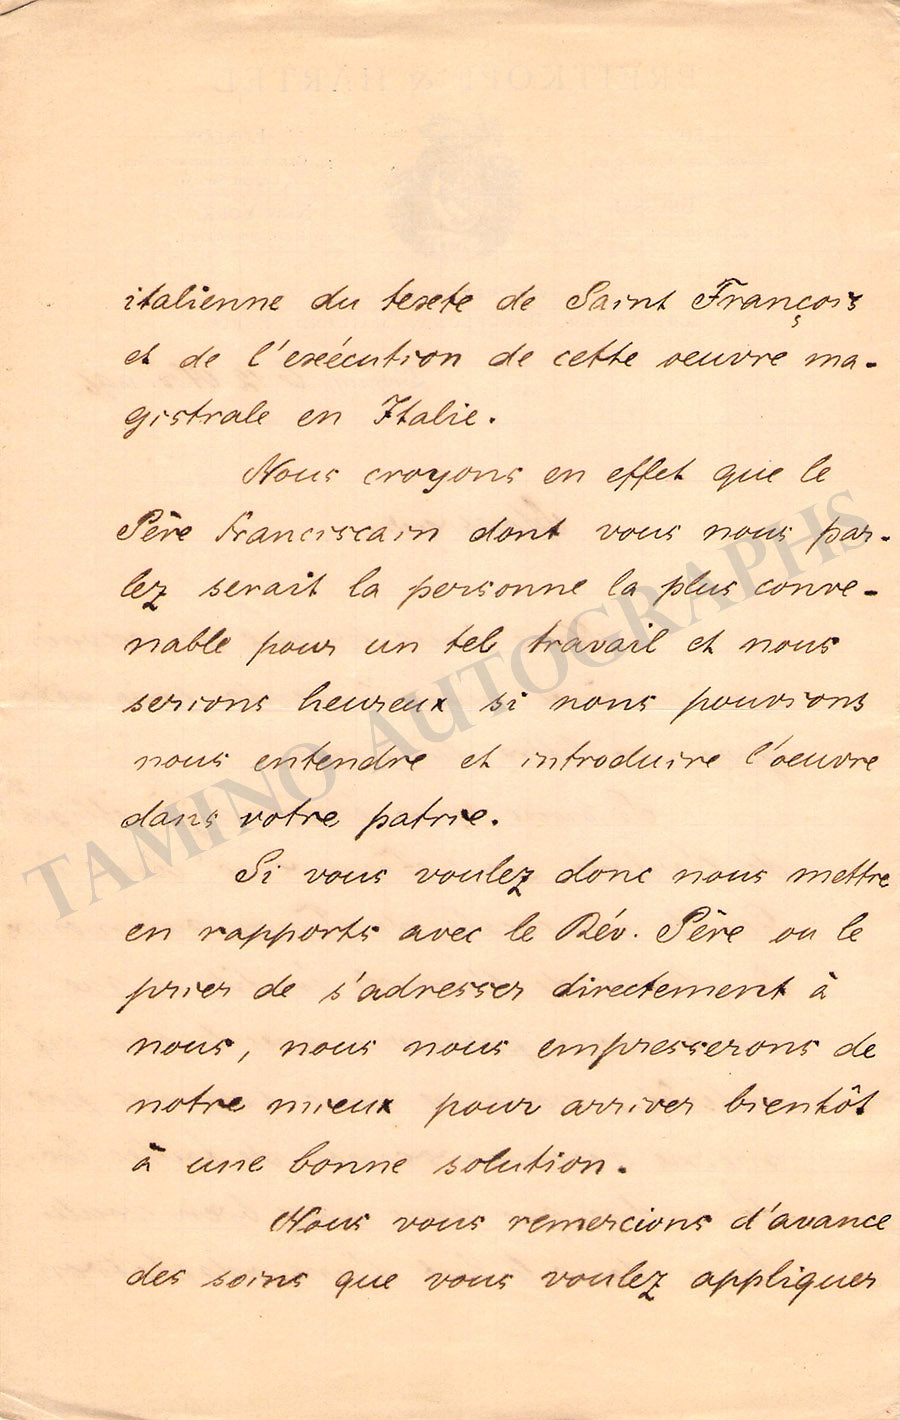 italienne du texte de Saint François
et de l'exécution de cette oeuvre ma-
gistrale en Italie.
Nous croyons en effet que le
Père Franciscain dont vous nous par-
lez serait la personne la plus conve-
nable pour un tel travail et nous
serions heureux si nous pouvions
nous entendre et introduire l'oeuvre
dans votre patrie.
Si vous voulez donc nous mettre
en rapports avec le Rév. Père ou le
prier de s'adresser directement à
nous, nous nous empresserons de
notre mieux pour arriver bientôt
à une bonne solution.
Nous vous remercions d'avance
des soins que vous voulez appliquer
TAMINO AUTOGRAPHS
BREITKOPF & HÄRTEL